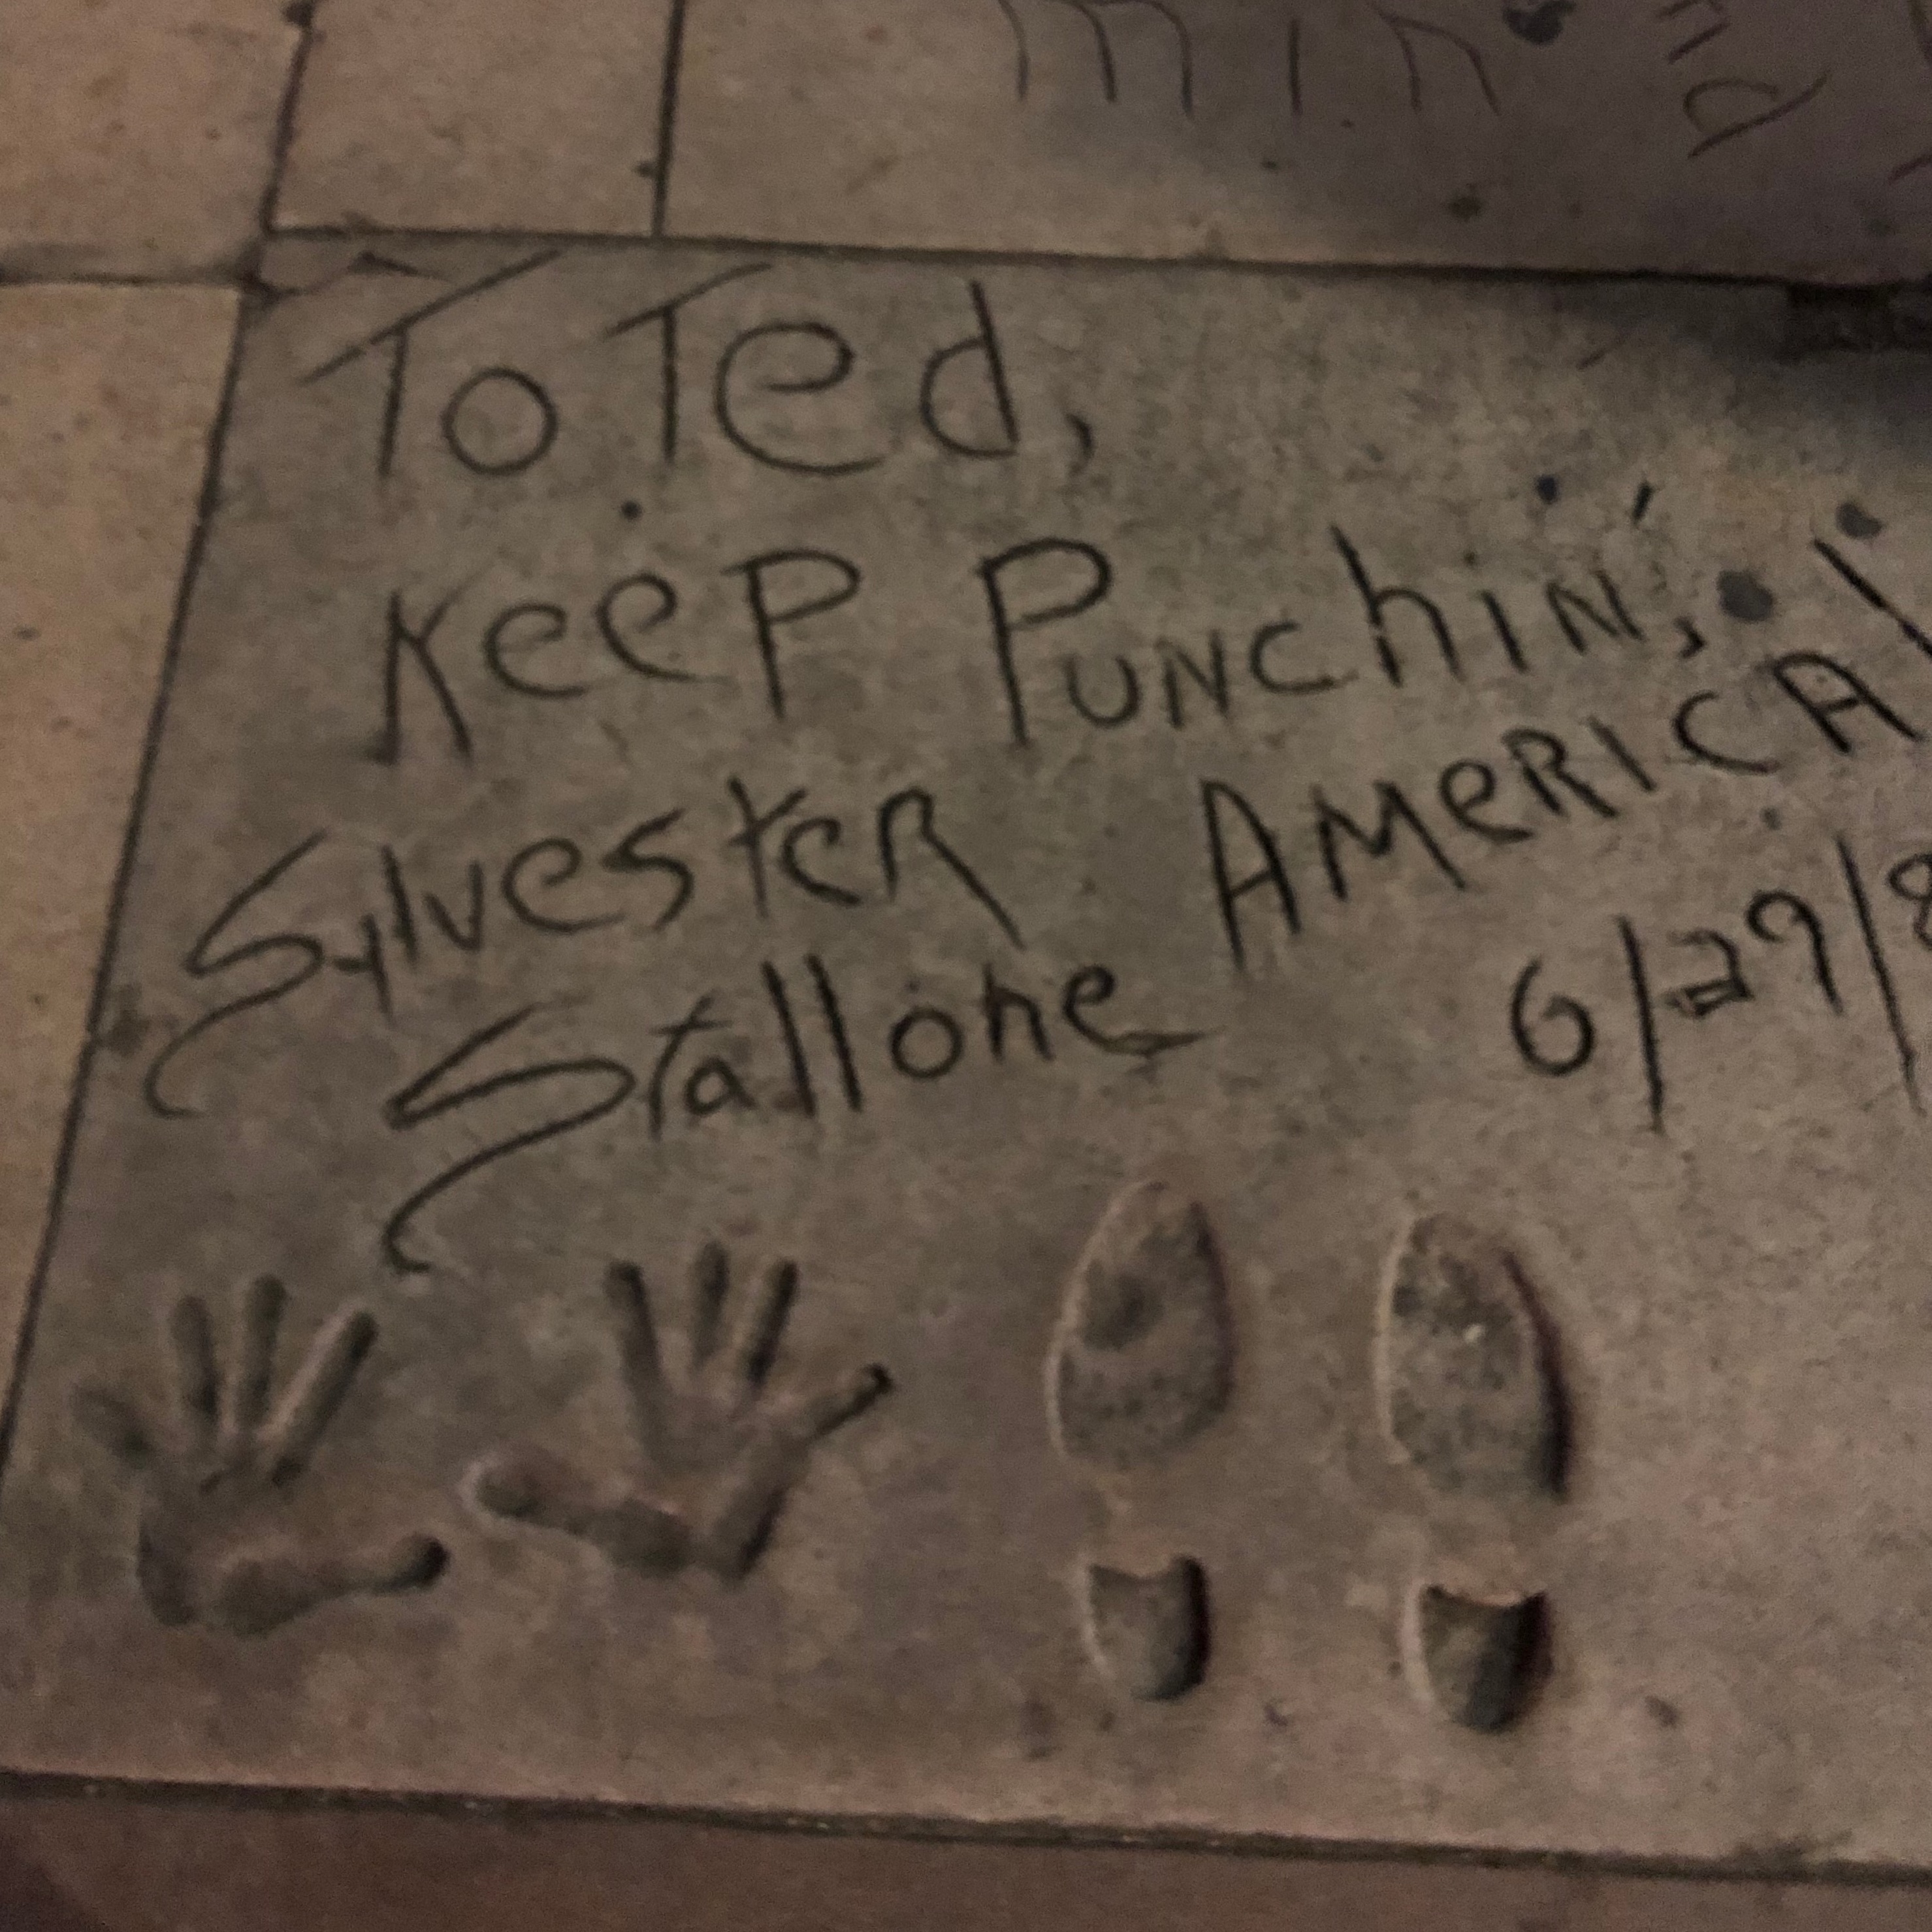 To Ted,
KeeP PuNchiN',
AMeRICA!
SylvesteR
Stallone
6/29/8